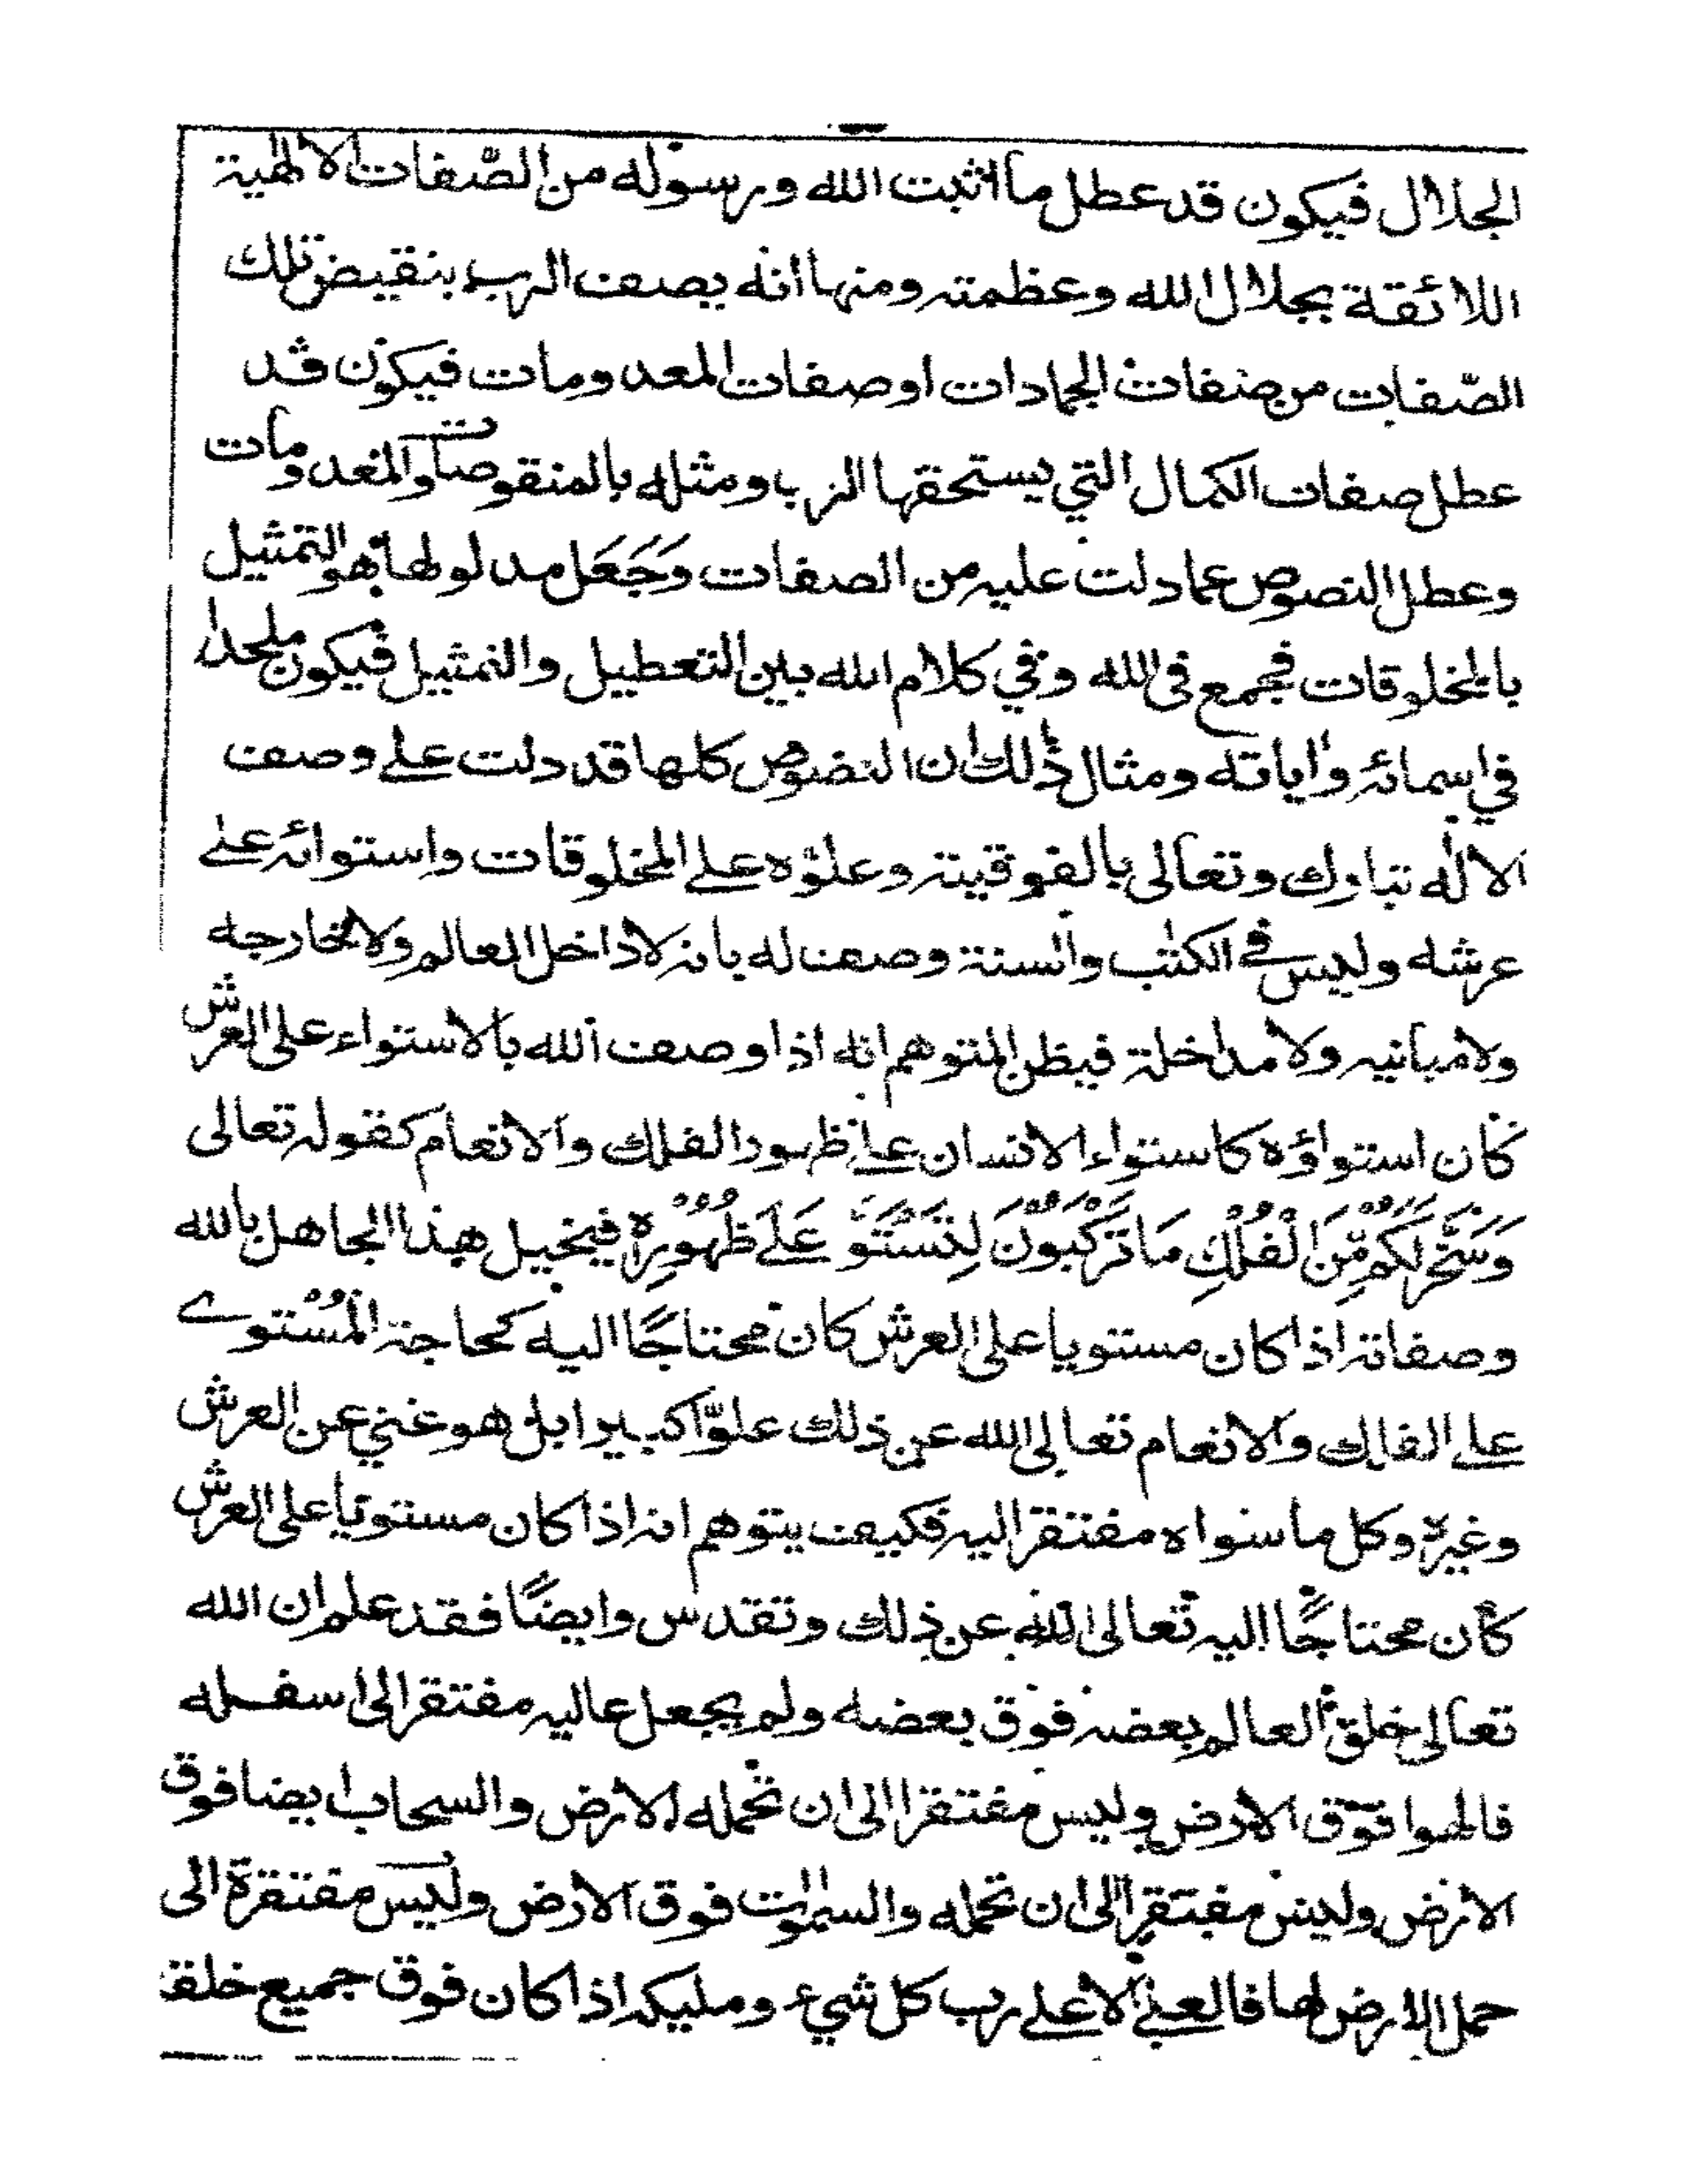 الجلال فيكون قد عطل ما اثبت الله ورسوله من الصفات الالهية
اللائقة بجلال الله وعظمته ومنها انه يصف الرب بنقيض تلك
الصّفات من صفات الجمادات او صفات المعدومات فيكون قد
عطل صفات الكمال التي يستحقها الرب ومثله بالمنقوصات والمعدومات
وعطل النصوص عما دلت عليه من الصفات وَجَعَل مدلولها هو التمثيل
بالمخلوقات فجمع فى الله وفي كلام الله بين التعطيل والتمثيل فيكون ملحدا
في اسمائه وأياته ومثال ذٰلك ان النصوص كلها قد دلت على وصف
الاله تبارك وتعالى بالفوقية وعلوّه على المخلوقات واستوائه على
عرشه وليس في الكتٰب والسنة وصف له بانه لا داخل العالم ولا خارجه
ولا مبانيه ولا مداخلة فيظن المتوهم انه اذا وصف الله بالاستواء على العرش
كان استواؤه كاستواء الانسان على ظهور الفلك والانعام كقوله تعالى
وَسَخَّرَ لَكُم مِّنَ الْفُلْكِ مَا تَرْكَبُوْنَ لِتَسْتَوُ عَلٰے ظُهُوْرِهٖ فيخيل هذا الجاهل بالله
وصفاته اذا كان مستويا على العرش كان محتاجًا اليه كحاجة المُسْتوے
على الفلك والانعام تعالى الله عن ذلك علوّا كبيرا بل هو غني عن العرش
وغيره وكل ما سواه مفتقر اليه فكيف يتوهم انه اذا كان مستويا على العرش
كان محتاجًا اليه تعالى الله عن ذلك وتقدس وايضًا فقد علم ان الله
تعالى خلق العالم بعضه فوق بعضه ولم يجعل عاليه مفتقرا الى اسفله
فالهوا فوق الارض وليس مفتقرا الى ان تحمله الارض والسحاب ايضا فوق
الارض وليس مفتقرا الى ان تحمله والسمٰوٰت فوق الارض وليس مفتقرة الى
حمل الارض لها فالعلے الاعلے رب كل شيء ومليكه اذا كان فوق جميع خلقه